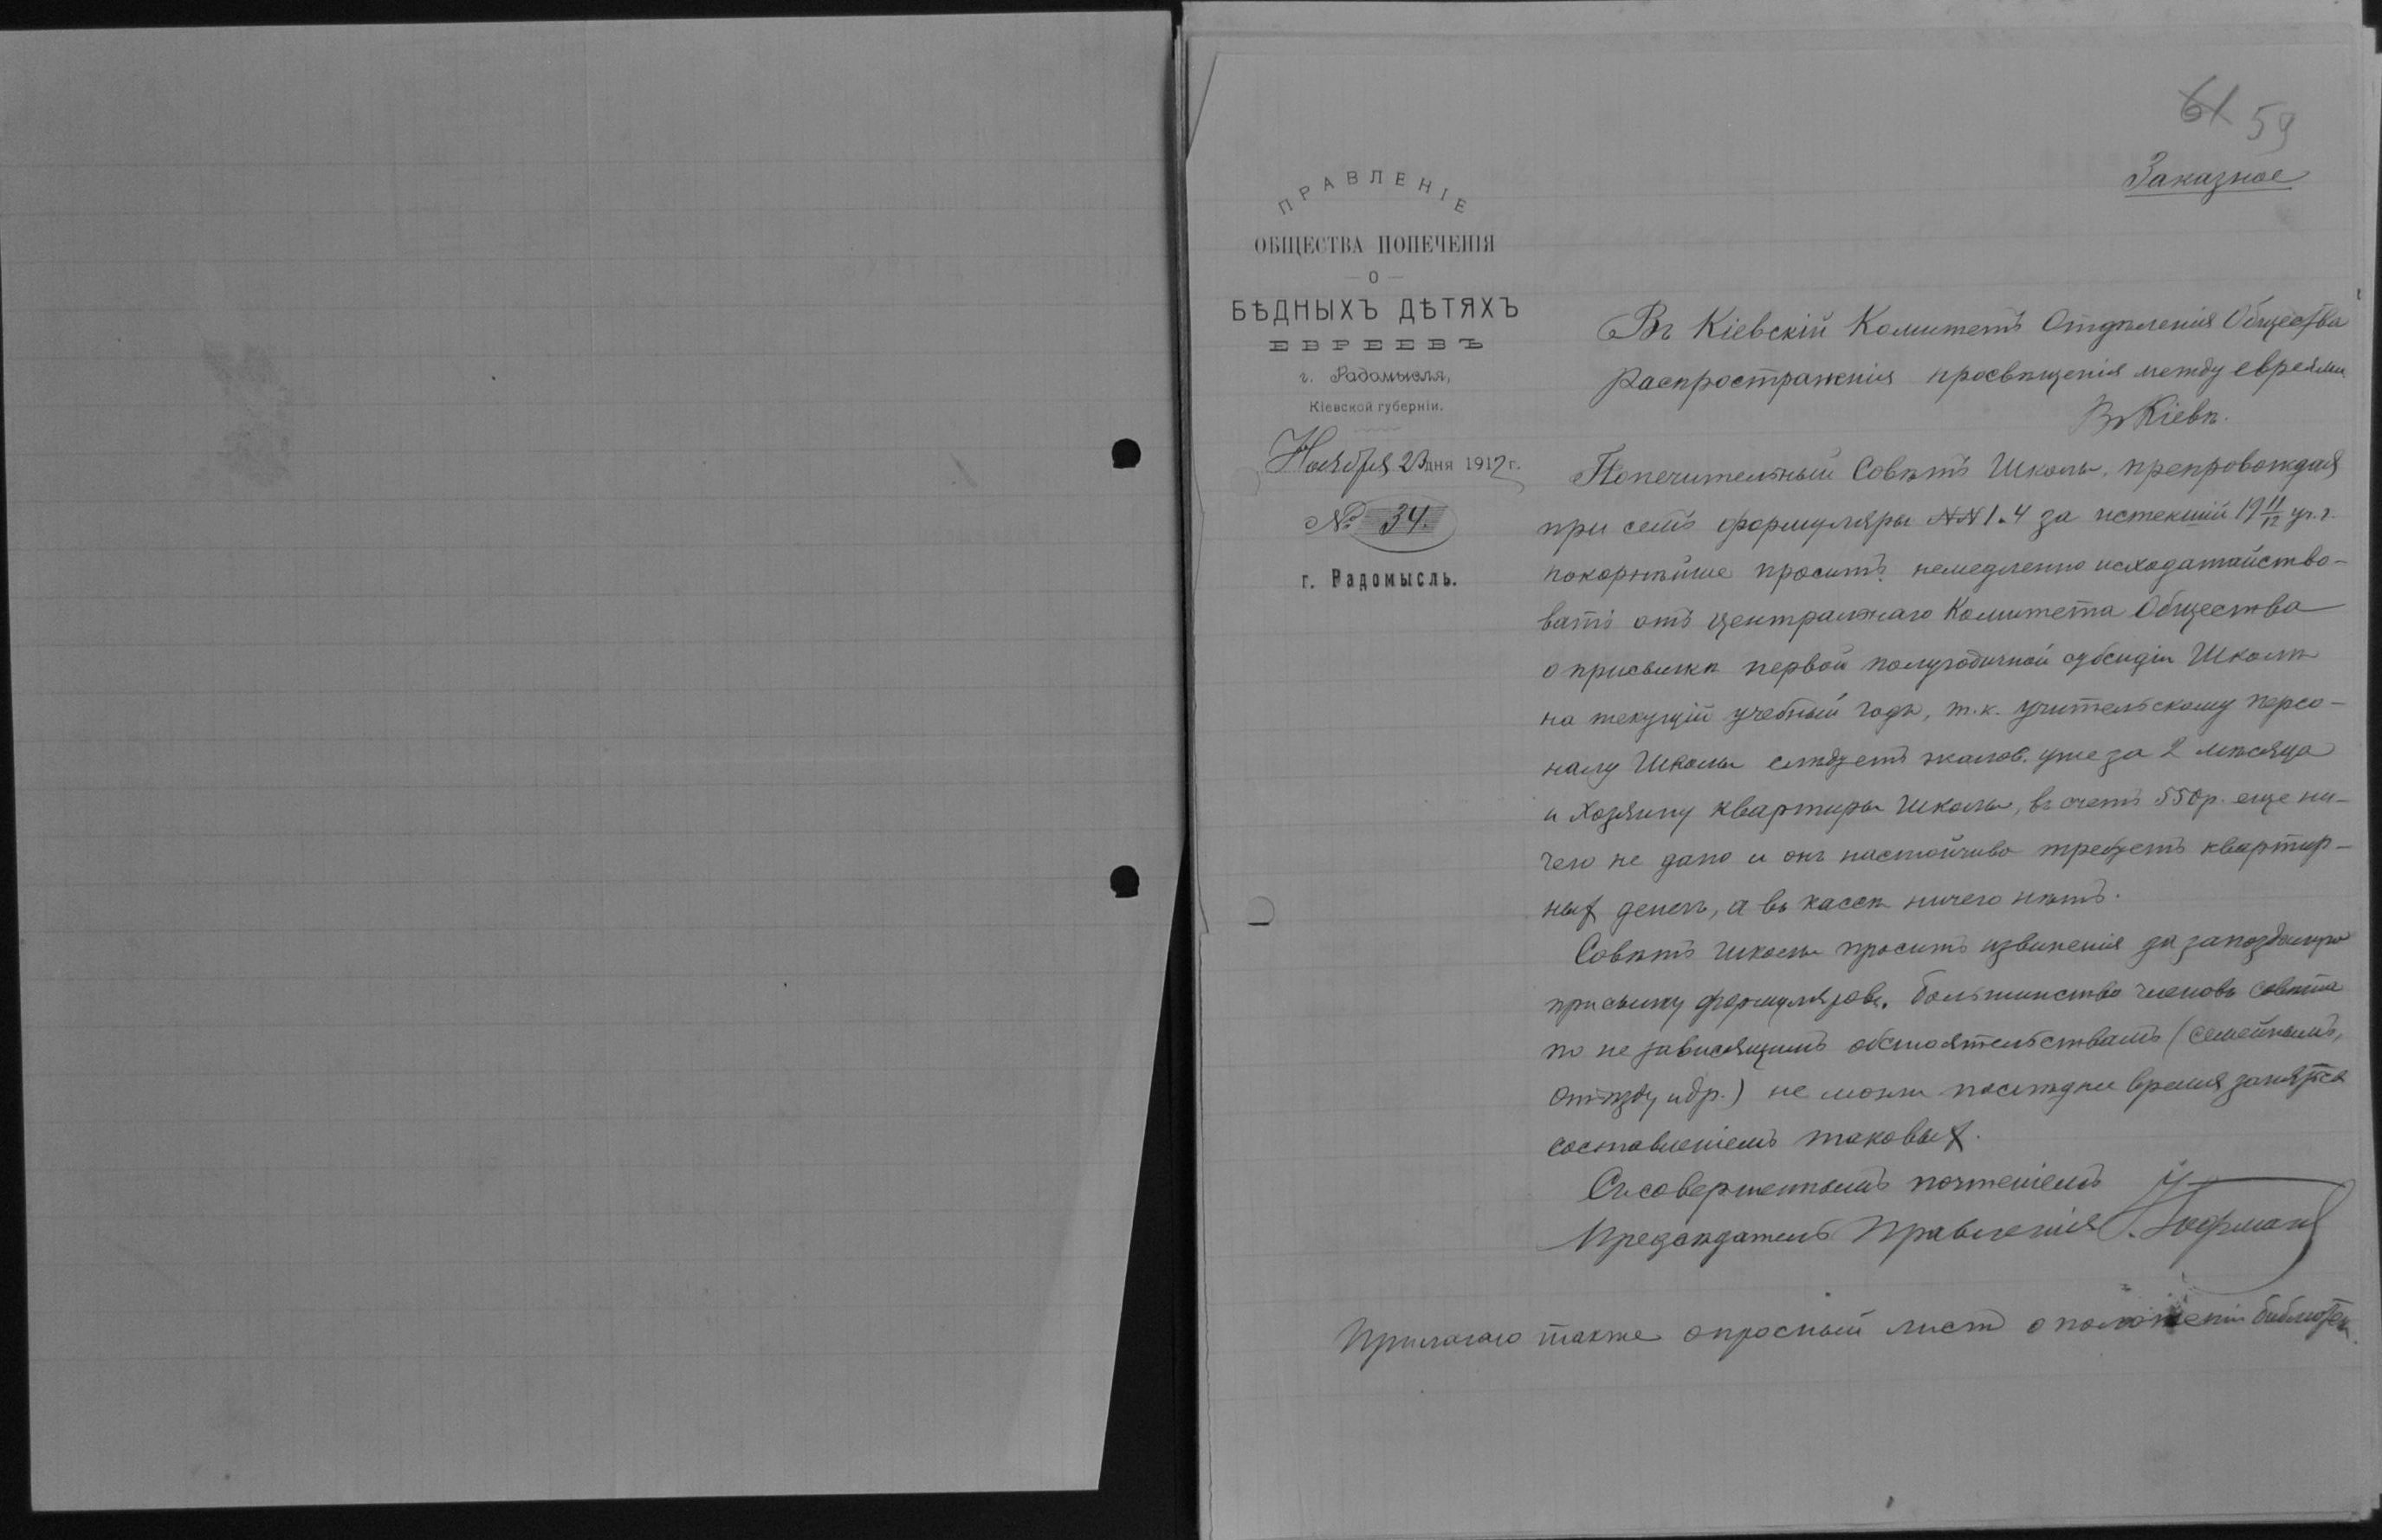 61 59
Заказное
ПРАВЛЕНІЕ
ОБЩЕСТВА ПОПЕЧЕНІЯ
О
БѢДНЫХЪ ДѢТЯХЪ
ЕВРЕЕВЪ
г. Радомысля,
Кіевской губерніи.
Ноября 23 дня 1912 г.
№ 34.
г. Радомысль.
Въ Кіевскій Комитетъ Отдѣленія Общества
распространенія просвѣщенія между евреями
Въ Кіевѣ.
Попечительный Совѣтъ Школы, препровождая
при семъ формуляры №№ 1. 4 за истекшій 19 11/12 уч. г.
покорнѣйше проситъ немедленно исходатайство-
вать отъ Центральнаго Комитета Общества
о присылкѣ первой полугодичной субсидіи Школѣ
на текущій учебный годъ, т.к. учительскому персо-
налу Школы слѣдуетъ жалов. уже за 2 мѣсяца
и хозяину квартиры Школы, въ счетъ 550 р. еще ни-
чего не дано и онъ настойчиво требуетъ квартир-
ных денегъ, а въ кассѣ ничего нѣтъ.
Совѣтъ школы проситъ извиненія за запоздалую
присылку формуляровъ. Большинство членовъ совѣта
по не зависящимъ обстоятельствамъ (семейнымъ,
отъѣзду и др.) не могли послѣднее время заняться
составленіемъ таковых.
Съ совершеннымъ почтеніемъ
Предсѣдатель Правленія
Прилагаю также опросный листъ о положеніи библіотеки.